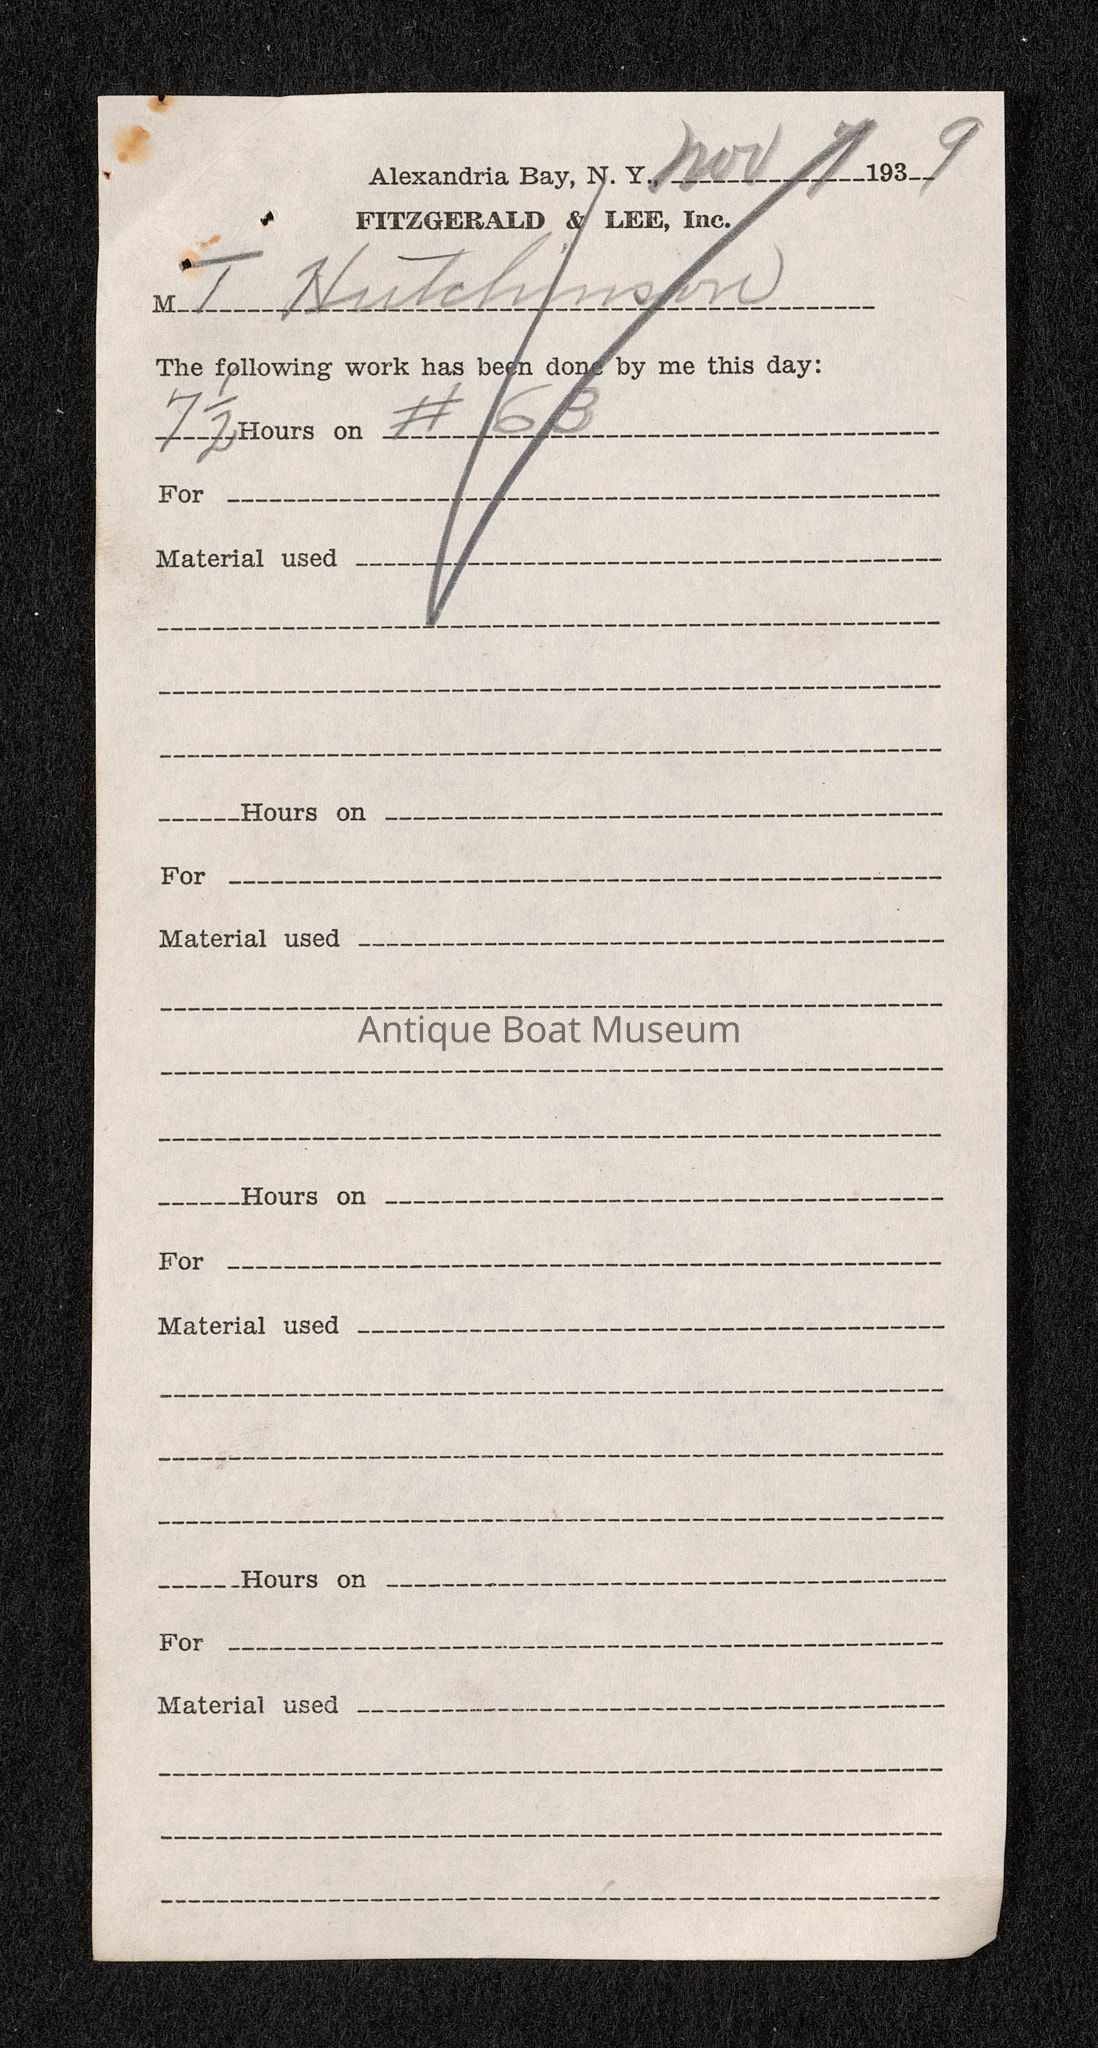 Alexandria Bay, N. Y., Nov 7 1939
FITZGERALD & LEE, Inc.
M T Hutchinson
The following work has been done by me this day:
7 1/2 Hours on # 63
For
Material used
Hours on
For
Material used
Antique Boat Museum
Hours on
For
Material used
Hours on
For
Material used